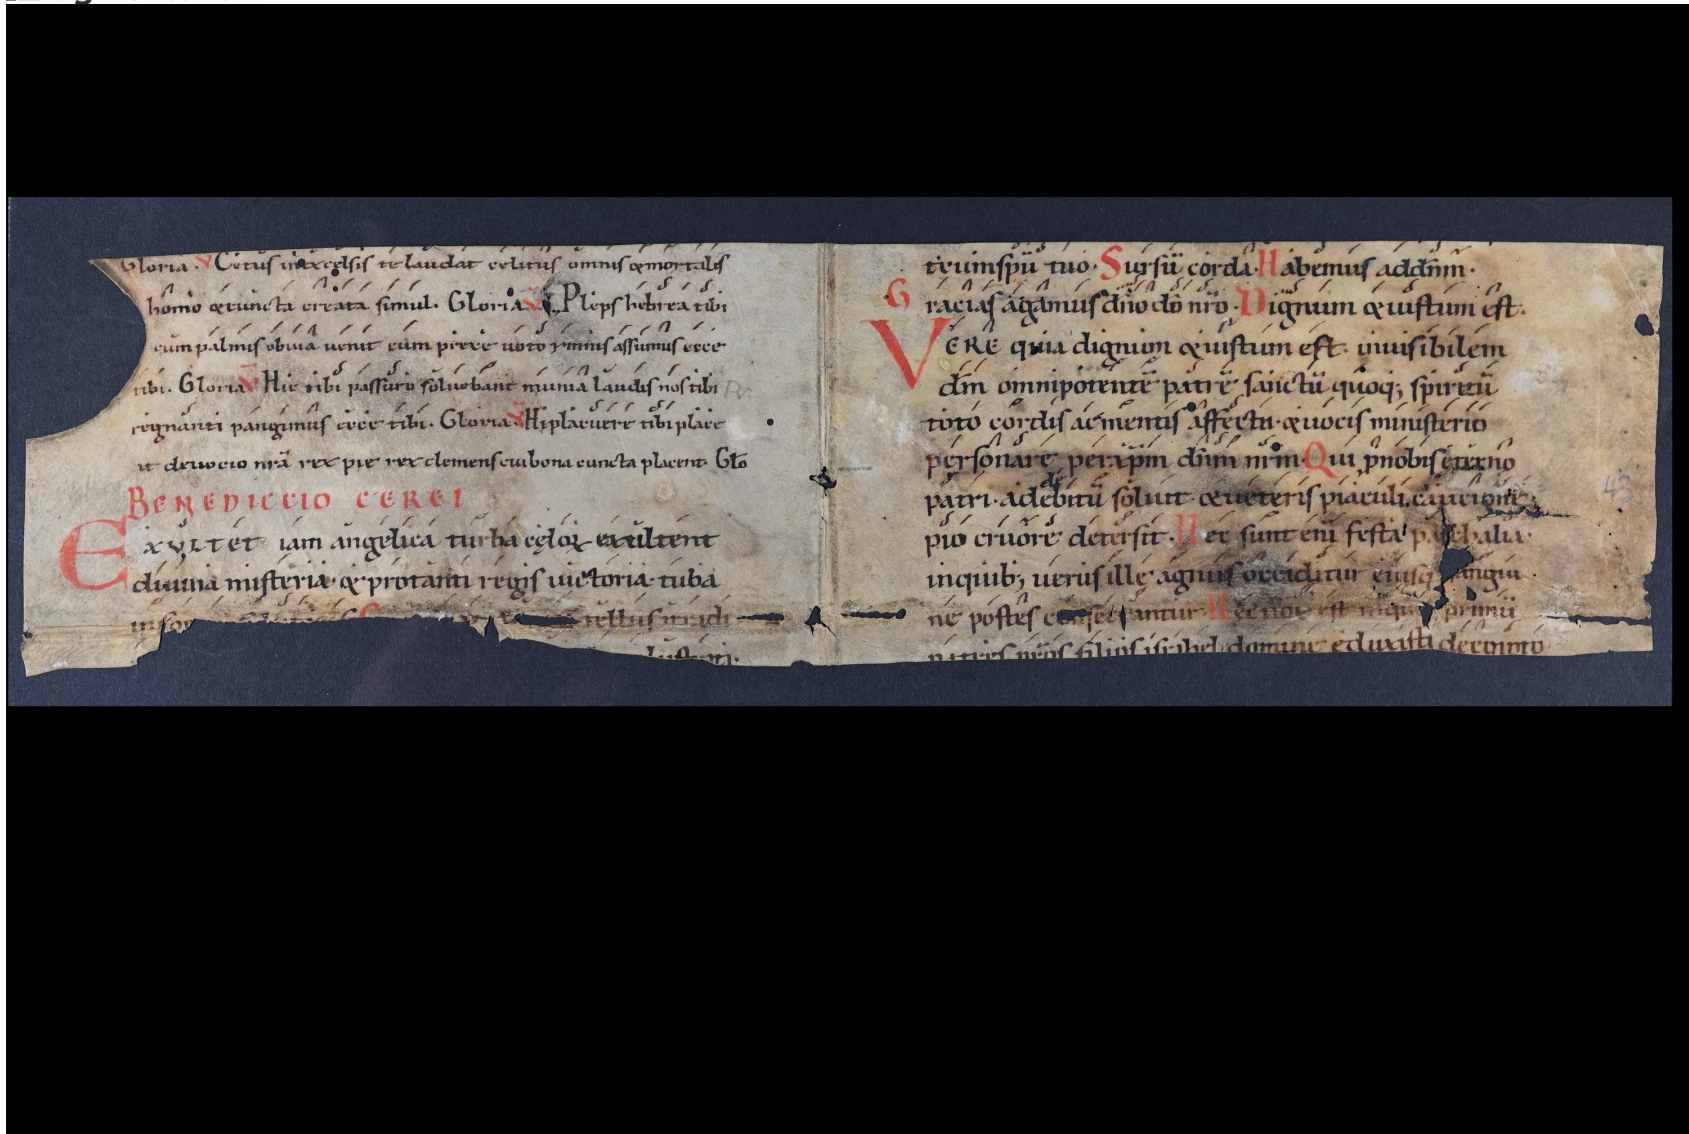 Gloria. V Cetus inexcelsis te laudat celitus omnis & mortalis
homo & cuncta creata simul. Gloria V Pleps hebrea tibi
cum palmis obvia venit cum prece voto ymnis assumus ecce
tibi. Gloria V Hic tibi passuro soluebant munia laudis nos tibi
regnanti pangimus ecce tibi. Gloria V Hi placuere tibi place
at deuocio nrā rex pie rex clemens cui bona cuncta placent. Glo
BENEDICCIO CEREI
EXULTET iam angelica turba cęloꝝ exultent
diuina misteria & protanti regis uictoria tuba
tellus iradi
lustrati.
& cum spū tuo. Sursū corda. Habemus ad dnm̄.
Gracias agamus dn̄o dō nr̄o. Dignum & iustum est.
VERE quia dignum & iustum est. inuisibilem
dm̄ omnipotentē patrē sanctū quoq; spiritū
toto cordis ac mentis affectu. & uocis ministerio
personare. per xp̄m dn̄m nr̄m. Qui p nobis ęterno
patri. adę debitū soluit. & ueteris piaculi cautione
pio cruore detersit. Hec sunt eni festa paschalia
inquib; uerus ille agnus occiditur eiusq; sangui
ne postes consecrantur. Hec nox est inqua primū
patres nros filios israhel domine eduxisti de egipto